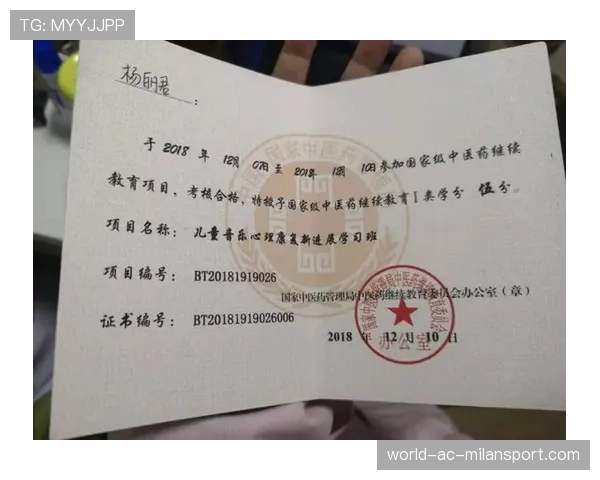 TG: MYYJJPP
杨明君：
于2018 年 12月 07日至 2018年 12月 10日参加国家级中医药继续
教育项目，考核合格，特授予国家级中医药继续教育Ⅰ类学分 伍分。
项目名称： 儿童音乐心理康复新进展学习班
项目编号： BT20181919026
国家中医药管理局中医药继续教育委员会办公室（章）
证书编号： BT20181919026006
2018 年 12 月 10 日
国家中医药管理局中医药继续教育委员会
办公室
world-ac-milansport.com